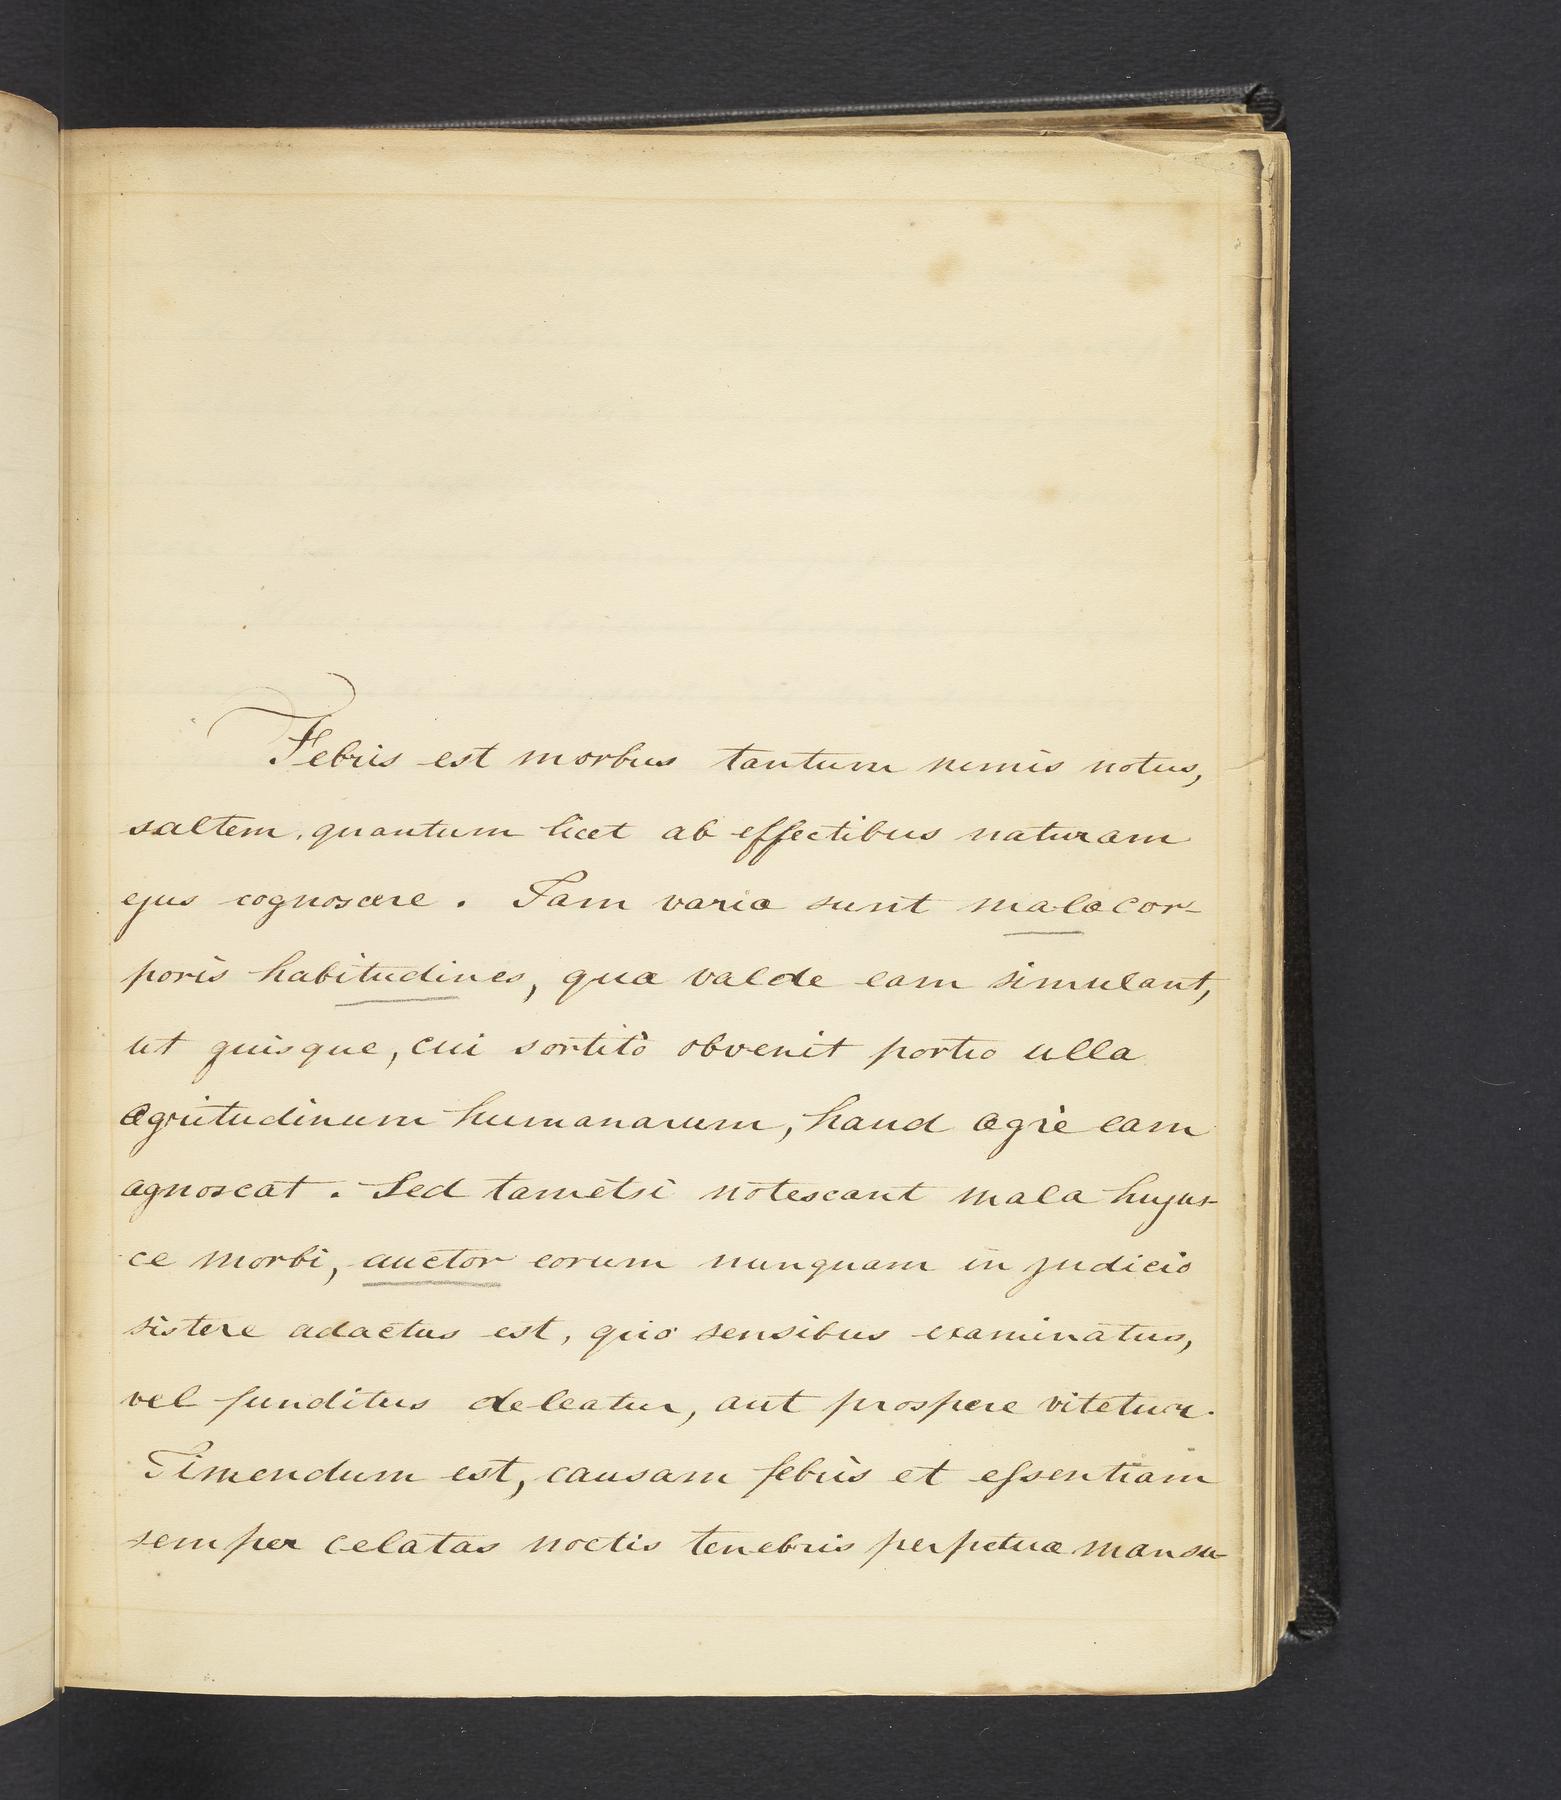 Febris est morbus tantum nimis notus,
saltem, quantum licet ab effectibus naturam
ejus cognoscere. Tam variæ sunt malæ cor-
poris habitudines, quæ valde eam simulant,
ut quisque, cui sortitò obvenit portio ulla
ægritudinum humanarum, haud ægrè eam
agnoscat. Sed tametsi notescant mala hujus-
ce morbi, auctor eorum nunquam in judicio
sistere adactus est, quò sensibus examinatus,
vel funditus deleatur, aut prospere vitetur.
Timendum est, causam febris et essentiam
semper celatas noctis tenebris perpetuæ mansu-